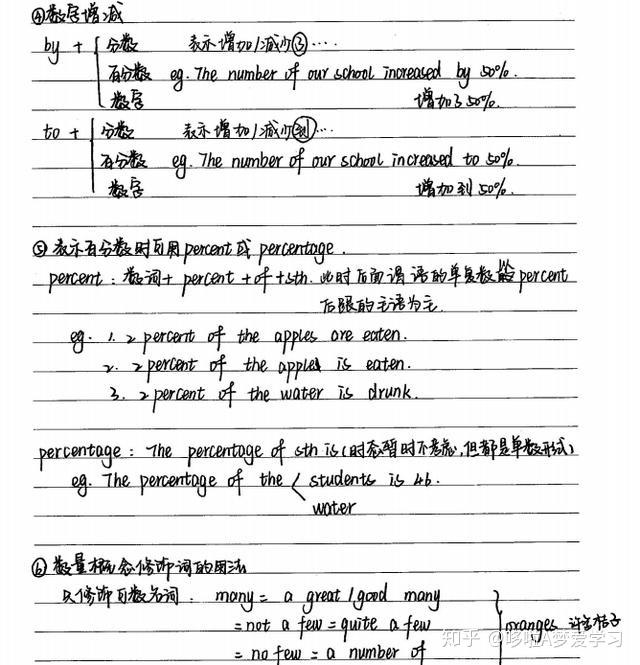 ④数字增减
by + { 分数 表示增加/减少③….
百分数 eg. The number of our school increased by 50%.
数字 增加了50%.
to + { 分数 表示增加/减少到….
百分数 eg. The number of our school increased to 50%.
数字 增加到50%.
⑤表示百分数时可用percent或percentage.
percent: 数词+ percent + of + sth. 此时后面谓语的单复数以percent
后跟的主语为主.
eg. 1. 2 percent of the apples are eaten.
2. 2 percent of the apple is eaten.
3. 2 percent of the water is drunk.
percentage: The percentage of sth is (时态暂时不考虑,但都是单数形式)
eg. The percentage of the < students is 46.
water
⑥数量概念修饰词的用法
只修饰可数名词: many = a great/good many
= not a few = quite a few } oranges 许多桔子
= no few = a number of
知乎 @哆啦A梦爱学习